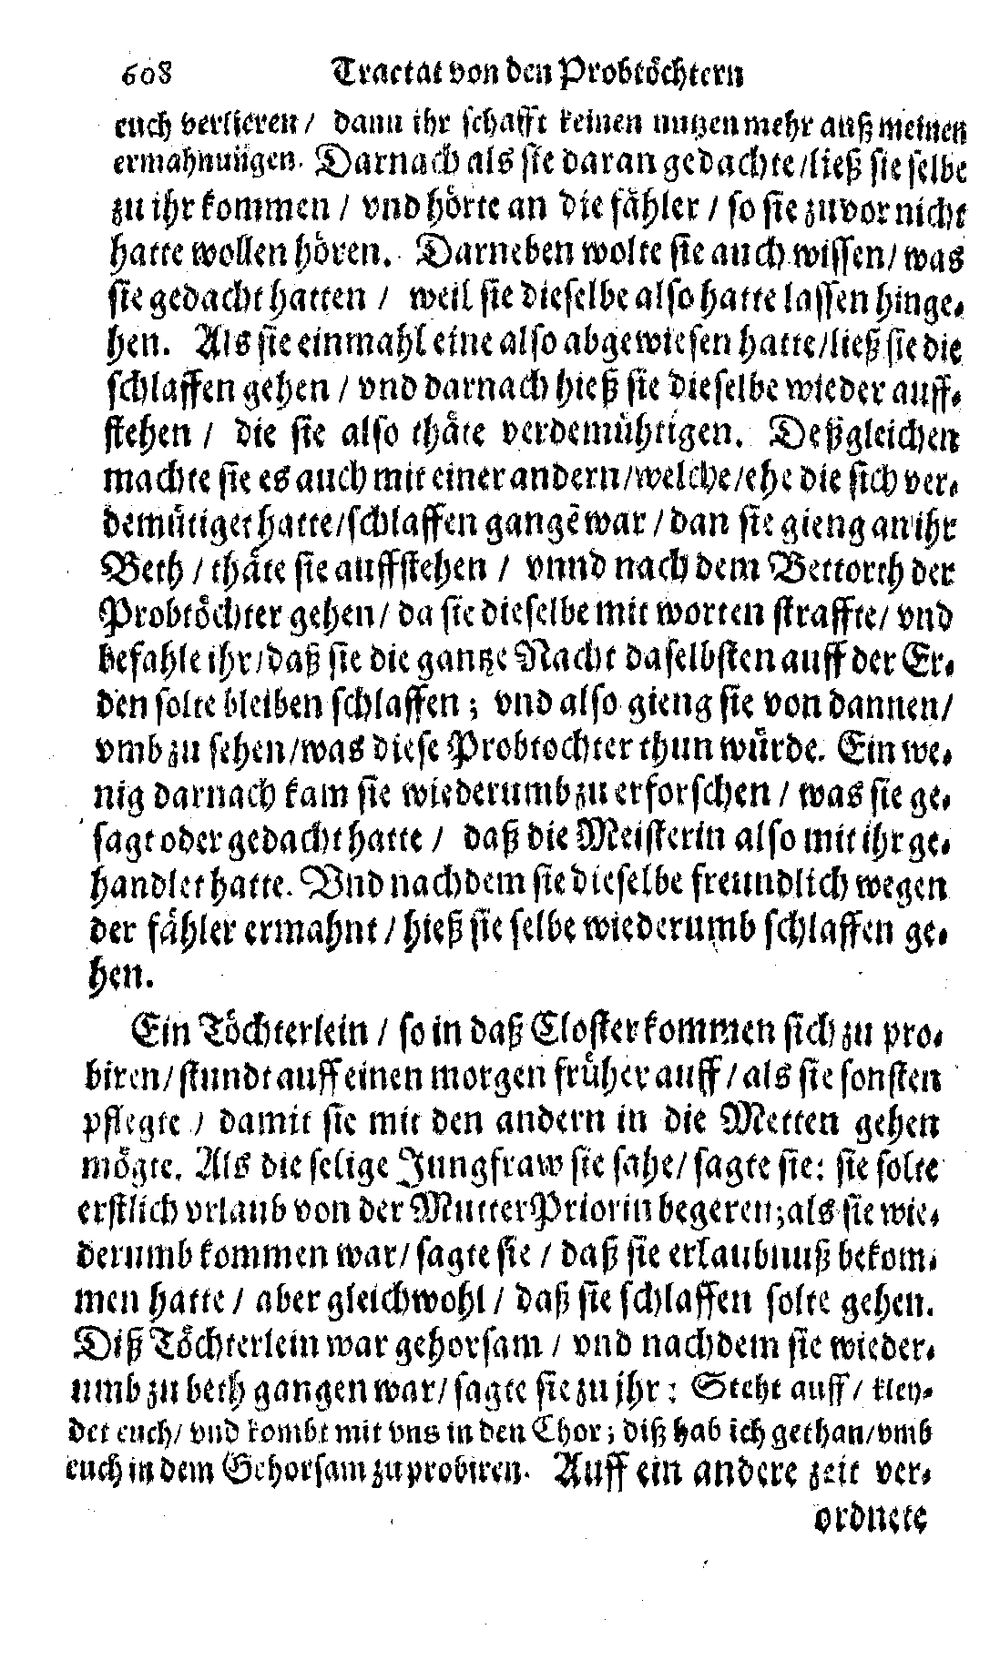 608 Tractat von den Probtöchtern
euch verlieren / dann ihr schafft keinen nutzen mehr auß meinen
ermahnungen. Darnach als sie daran gedachte/ließ sie selbe
zu ihr kommen / vnd hörte an die fähler / so sie zuvor nicht
hatte wollen hören. Darneben wolte sie auch wissen/was
sie gedacht hatten / weil sie dieselbe also hatte lassen hinge-
hen. Als sie einmahl eine also abgewiesen hatte/ließ sie die
schlaffen gehen / vnd darnach hieß sie dieselbe wieder auff-
stehen / die sie also thäte verdemühtigen. Deßgleichen
machte sie es auch mit einer andern/welche/ehe die sich ver-
demütiget hatte/schlaffen gangē war / dan sie gieng an ihr
Beth / thäte sie auffstehen / vnnd nach dem Bettorth der
Probtöchter gehen/ da sie dieselbe mit worten straffte/ vnd
befahle ihr/daß sie die gantze Nacht daselbsten auff der Er-
den solte bleiben schlaffen ; vnd also gieng sie von dannen/
vmb zu sehen/was diese Probtochter thun würde. Ein we-
nig darnach kam sie wiederumb zu erforschen / was sie ge-
sagt oder gedacht hatte / daß die Meisterin also mit ihr ge-
handlet hatte. Vnd nachdem sie dieselbe freundlich wegen
der fähler ermahnt / hieß sie selbe wiederumb schlaffen ge-
hen.
Ein Töchterlein / so in daß Closter kommen sich zu pro-
biren/ stundt auff einen morgen früher auff / als sie sonsten
pflegte / damit sie mit den andern in die Metten gehen
mögte. Als die selige Jungfraw sie sahe/ sagte sie: sie solte
erstlich vrlaub von der Mutter Priorin begeren; als sie wie-
derumb kommen war/ sagte sie / daß sie erlaubnuß bekom-
men hatte / aber gleichwohl / daß sie schlaffen solte gehen.
Diß Töchterlein war gehorsam / vnd nachdem sie wieder-
umb zu beth gangen war/ sagte sie zu jhr : Steht auff / kley-
det euch/ vnd kombt mit vns in den Chor; diß hab ich gethan/vmb
euch in dem Gehorsam zu probiren. Auff ein andere zeit ver-
ordnete